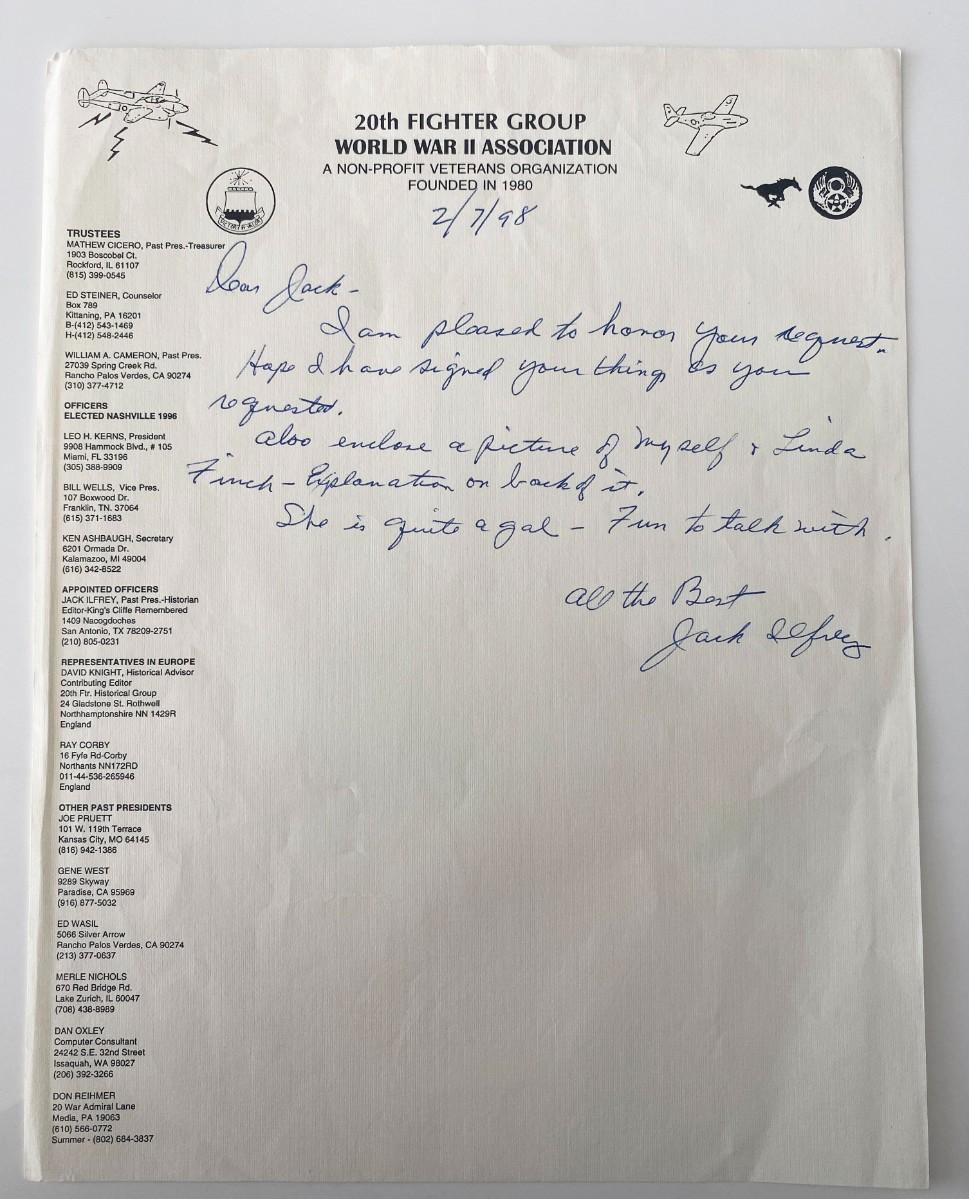 20th FIGHTER GROUP
WORLD WAR II ASSOCIATION
A NON-PROFIT VETERANS ORGANIZATION
FOUNDED IN 1980
2/7/98
TRUSTEES
MATHEW CICERO, Past Pres.-Treasurer
1903 Boscobel Ct.
Rockford, IL 61107
(815) 399-0545
ED STEINER, Counselor
Box 789
Kittaning, PA 16201
B-(412) 543-1469
H-(412) 548-2446
WILLIAM A. CAMERON, Past Pres.
27039 Spring Creek Rd.
Rancho Palos Verdes, CA 90274
(310) 377-4712
OFFICERS
ELECTED NASHVILLE 1996
LEO H. KERNS, President
9908 Hammock Blvd., # 105
Miami, FL 33196
(305) 388-9909
BILL WELLS, Vice Pres.
107 Boxwood Dr.
Franklin, TN. 37064
(615) 371-1683
KEN ASHBAUGH, Secretary
6201 Ormada Dr.
Kalamazoo, MI 49004
(616) 342-8522
APPOINTED OFFICERS
JACK ILFREY, Past Pres.-Historian
Editor-King's Cliffe Remembered
1409 Nacogdoches
San Antonio, TX 78209-2751
(210) 805-0231
REPRESENTATIVES IN EUROPE
DAVID KNIGHT, Historical Advisor
Contributing Editor
20th Ftr. Historical Group
24 Gladstone St. Rothwell
Northhamptonshire NN 1429R
England
RAY CORBY
16 Fyfe Rd-Corby
Northants NN172RD
011-44-536-265946
England
OTHER PAST PRESIDENTS
JOE PRUETT
101 W. 119th Terrace
Kansas City, MO 64145
(816) 942-1386
GENE WEST
9289 Skyway
Paradise, CA 95969
(916) 877-5032
ED WASIL
5066 Silver Arrow
Rancho Palos Verdes, CA 90274
(213) 377-0637
MERLE NICHOLS
670 Red Bridge Rd.
Lake Zurich, IL 60047
(708) 438-8989
DAN OXLEY
Computer Consultant
24242 S.E. 32nd Street
Issaquah, WA 98027
(206) 392-3266
DON REIHMER
20 War Admiral Lane
Media, PA 19063
(610) 566-0772
Summer - (802) 684-3837
Dear Jack -
I am pleased to honor your request.
Hope I have signed your things as you
requested.
Also enclose a picture of myself & Linda
Finch - Explanation on back of it.
She is quite a gal - Fun to talk with.
All the Best
Jack Ilfrey